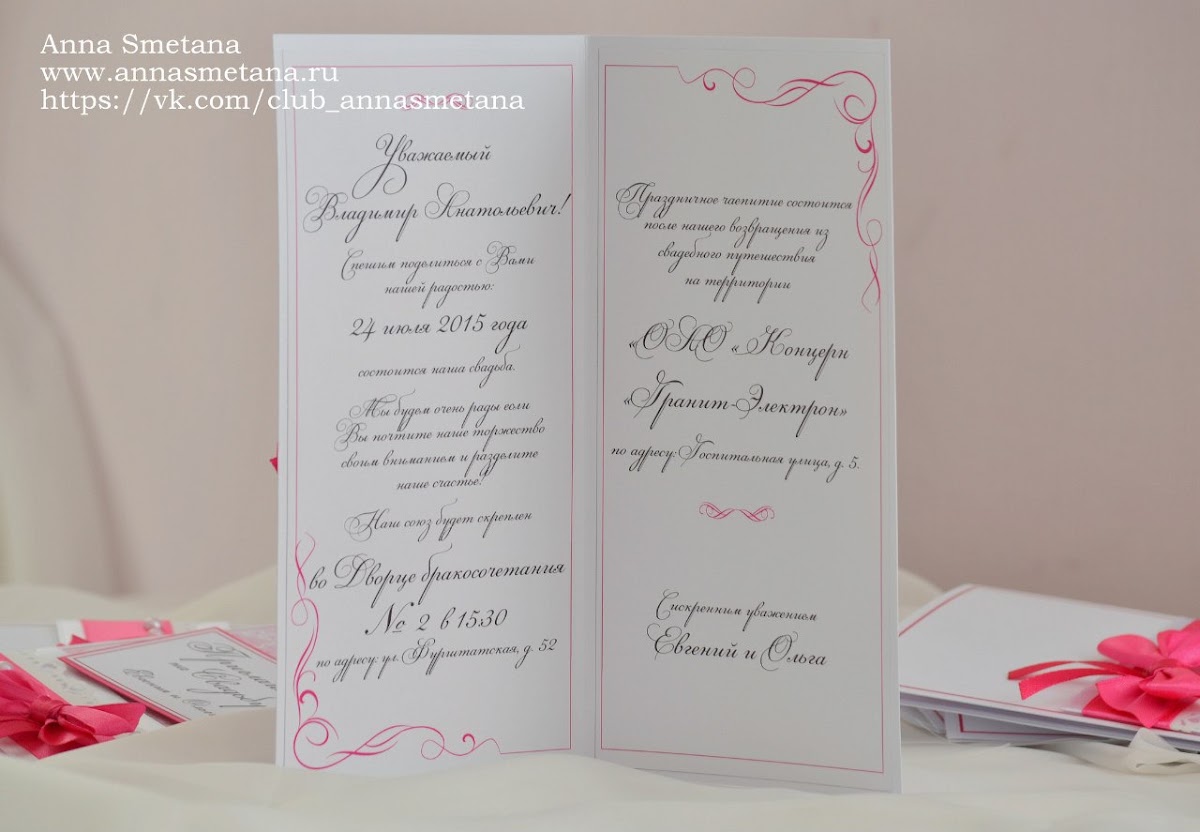 Anna Smetana
www.annasmetana.ru
https://vk.com/club_annasmetana
Уважаемый
Владимир Анатольевич!
Спешим поделиться с Вами
нашей радостью:
24 июля 2015 года
состоится наша свадьба.
Мы будем очень рады если
Вы почтите наше торжество
своим вниманием и разделите
наше счастье!
Наш союз будет скреплен
во Дворце бракосочетания
№ 2 в 15:30
по адресу: ул. Фурштатская, д. 52
Праздничное чаепитие состоится
после нашего возвращения из
свадебного путешествия
на территории
«ОАО «Концерн
«Гранит-Электрон»
по адресу: Госпитальная улица, д. 5.
Сискренним уважением
Евгений и Ольга
на Свадьбу